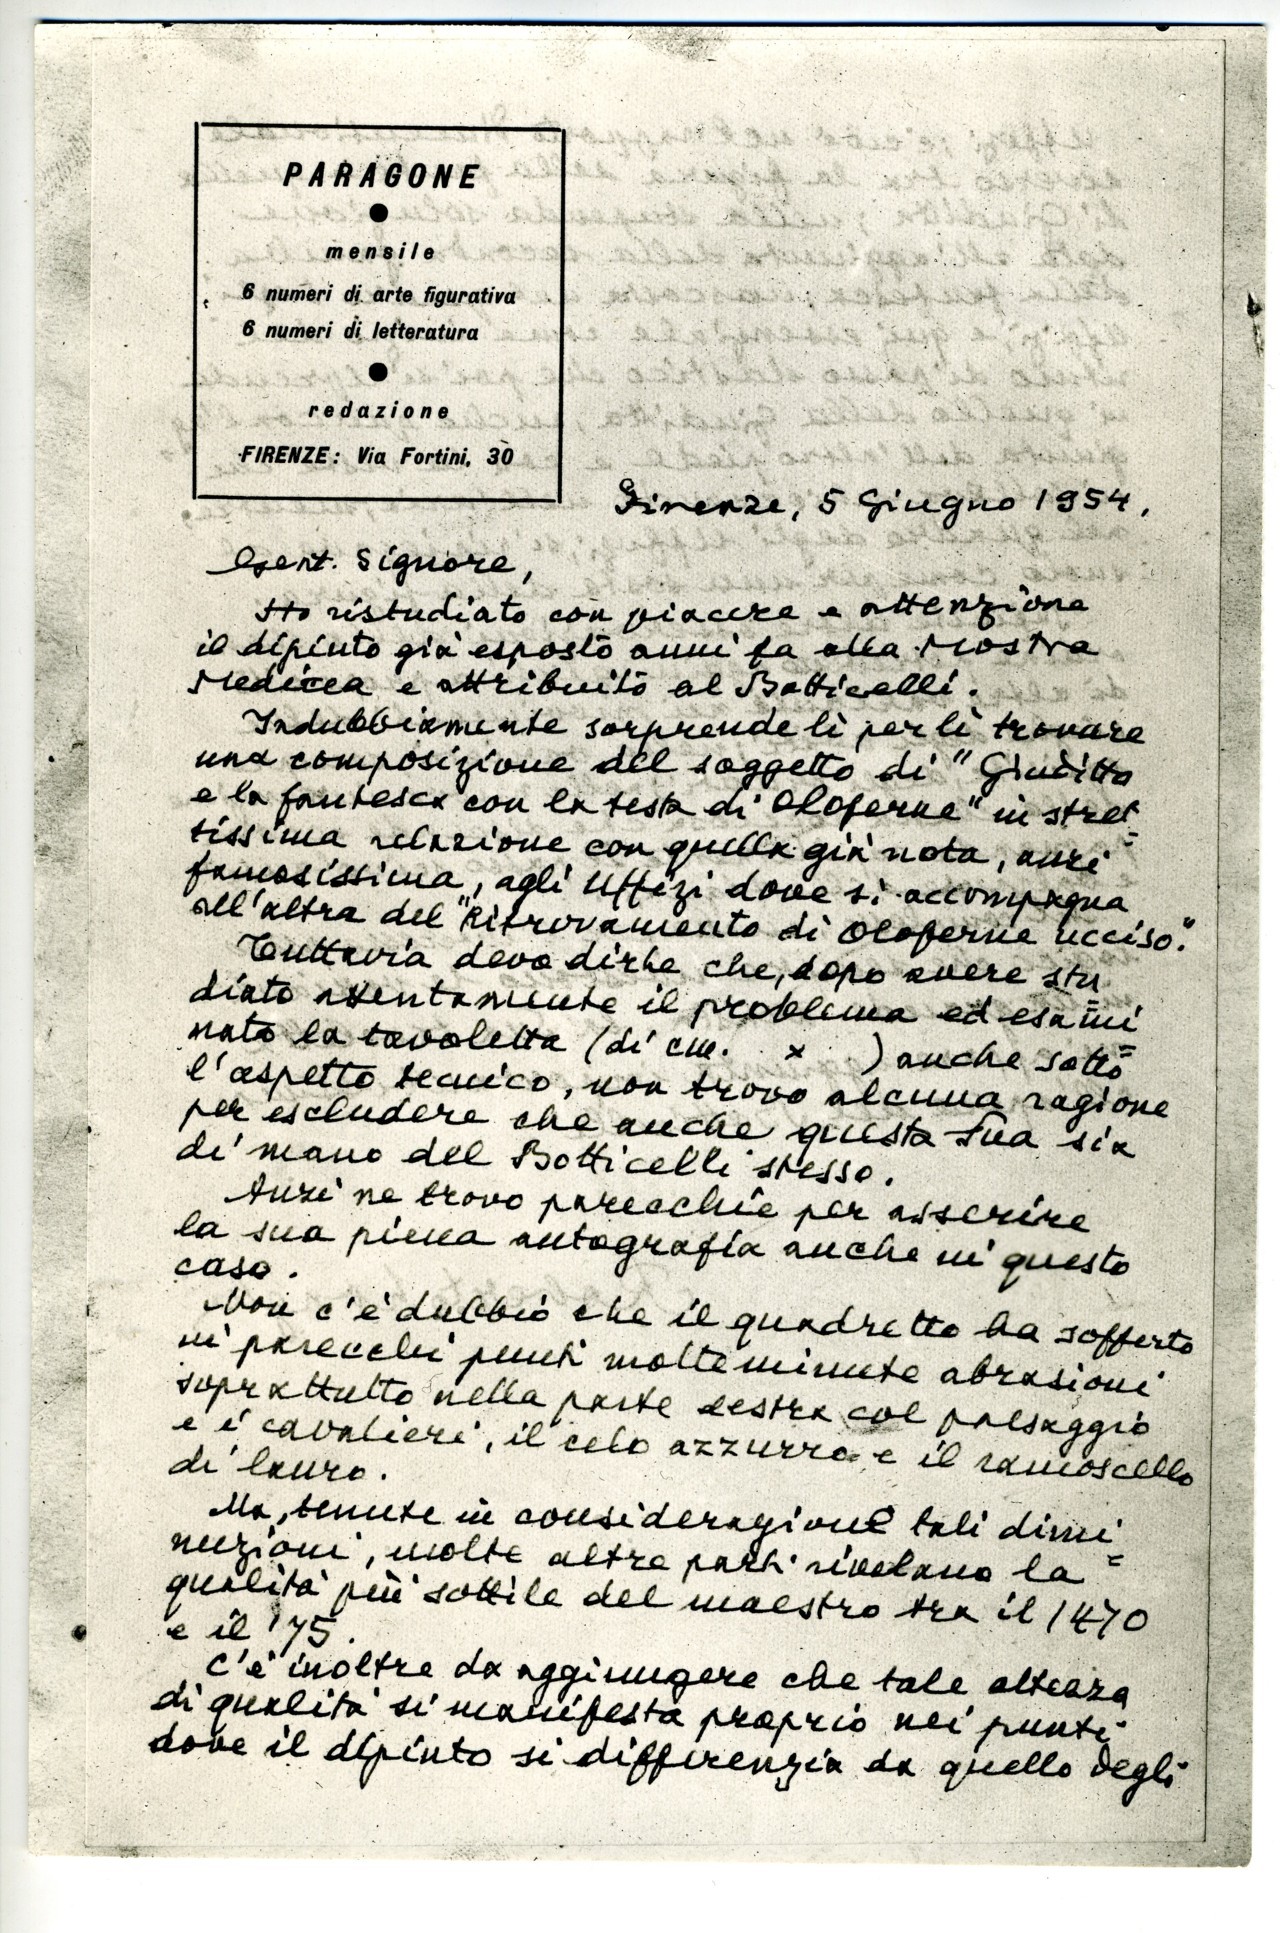 PARAGONE
mensile
6 numeri di arte figurativa
6 numeri di letteratura
redazione
FIRENZE: Via Fortini, 30
Firenze, 5 Giugno 1954.
Gent. Signore,
Ho ristudiato con piacere e attenzione
il dipinto già esposto anni fa alla Mostra
Medicea e attribuito al Botticelli.
Indubbiamente sorprende lì per lì trovare
una composizione del soggetto di "Giuditta
e la fantesca con la testa di Oloferne" in stret=
tissima relazione con quella già nota, anzi
famosissima, agli Uffizi dove si accompagna
all'altra del "Ritrovamento di Oloferne ucciso".
Tuttavia devo dirLe che, dopo avere stu=
diato attentamente il problema ed esami=
nato la tavoletta (di cm. x ) anche sotto
l'aspetto tecnico, non trovo alcuna ragione
per escludere che anche questa Sua sia
di mano del Botticelli stesso.
Anzi ne trovo parecchie per asserire
la sua piena autografia anche in questo
caso.
Non c'è dubbio che il quadretto ha sofferto
in parecchi punti molte minute abrasioni
soprattutto nella parte destra col paesaggio
e i cavalieri, il celo azzurro e il ramoscello
di lauro.
Ma, tenute in considerazione tali dimi=
nuzioni, molte altre parti rivelano la
qualità più sottile del maestro tra il 1470
e il '75.
C'è inoltre da aggiungere che tale altezza
di qualità si manifesta proprio nei punti
dove il dipinto si differenzia da quello degli